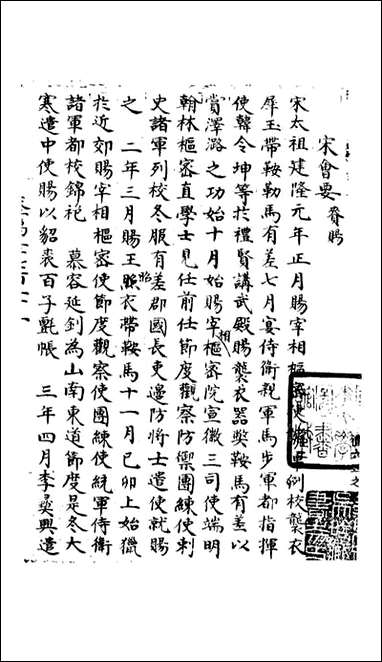 宋會要 眷賜
宋太祖建隆元年正月賜宰相樞密使諸軍列校襲衣
犀玉帶鞍勒馬有差七月宴侍衛親軍馬步軍都指揮
使韓令坤等於禮賢講武殿賜襲衣器幣鞍馬有差以
賞澤潞之功始十月始賜宰相樞密院宣徽三司使端明
翰林樞密直學士見任前任節度觀察防禦團練使刺
史諸軍列校冬服有差郡國長吏邊防將士遣使就賜
之 二年三月賜王昭衣帶鞍馬十一月己卯上始獵
於近郊賜宰相樞密使節度觀察使團練使統軍侍衛
諸軍都校錦袍 慕容延釗為山南東道節度是冬大
寒遣中使賜以貂裘百子氈帳 三年四月李彝興遣